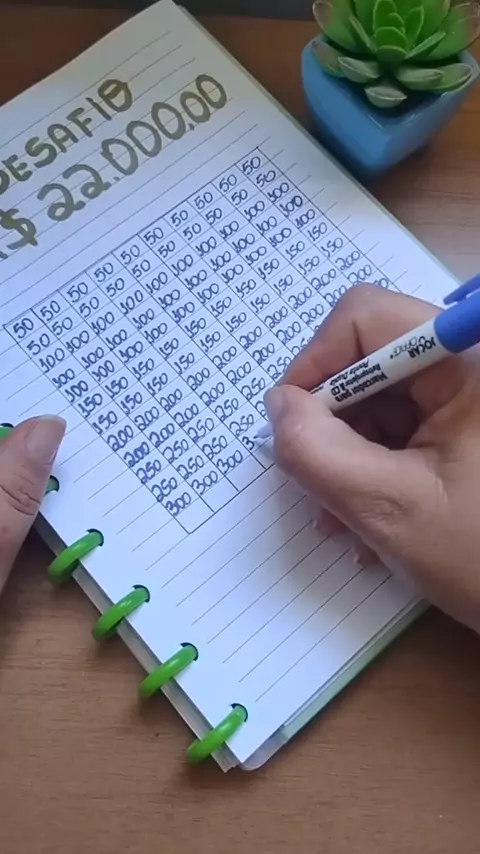 DESAFIO
$ 22.000,00
50 50 50 50 50 50 50 50 50 50
50 50 50 50 50 50 50 50 50 50
100 100 100 100 100 100 100 100 100 100
100 100 100 100 100 100 100 100 100 100
100 100 100 100 100 100 100 100 100 100
150 150 150 150 150 150 150 150 150 150
150 150 150 150 150 150 150 150 150 150
200 200 200 200 200 200 200 200 200 200
200 200 200 200 200 200 200 200 200
250 250 250 250 250 250
250 250 250 250
300 300 300 3
JOCAR
OFFICE
Marcador para
Retroprojetor & CD